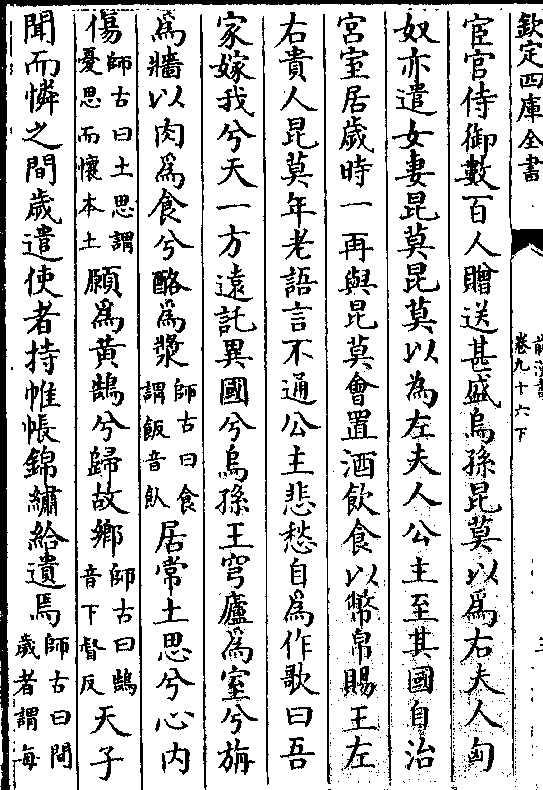 欽定四庫全書
前漢書
卷九十六下
宦官侍御數百人贈送甚盛烏孫昆莫以爲右夫人匈
奴亦遣女妻昆莫昆莫以為左夫人公主至其國自治
宮室居歲時一再與昆莫會置酒飲食以幣帛賜王左
右貴人昆莫年老語言不通公主悲愁自爲作歌曰吾
家嫁我兮天一方遠託異國兮烏孫王穹廬爲室兮旃
爲牆以肉爲食兮酪爲漿師古曰食謂飯音飤居常土思兮心內
傷師古曰土思謂憂思而懷本土願爲黃鵠兮歸故鄉師古曰鵠音下督反天子
聞而憐之間歲遣使者持帷帳錦繡給遺焉師古曰間歲者謂每